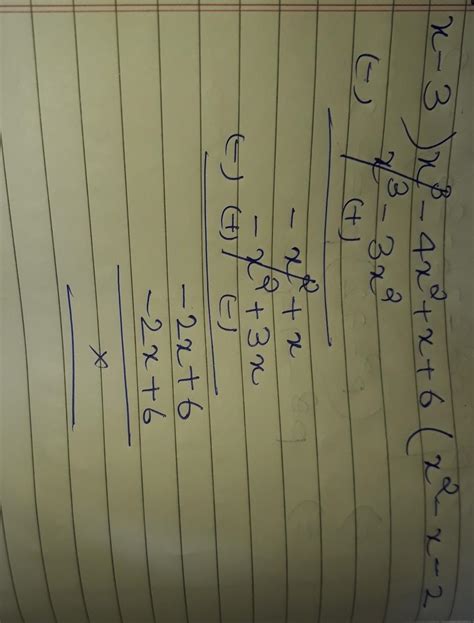 x - 3 ) x³ - 4x² + x + 6 ( x² - x - 2
x³ - 3x²
(-) (+)
- x² + x
- x² + 3x
(-) (+) (-)
-2x + 6
-2x + 6
×